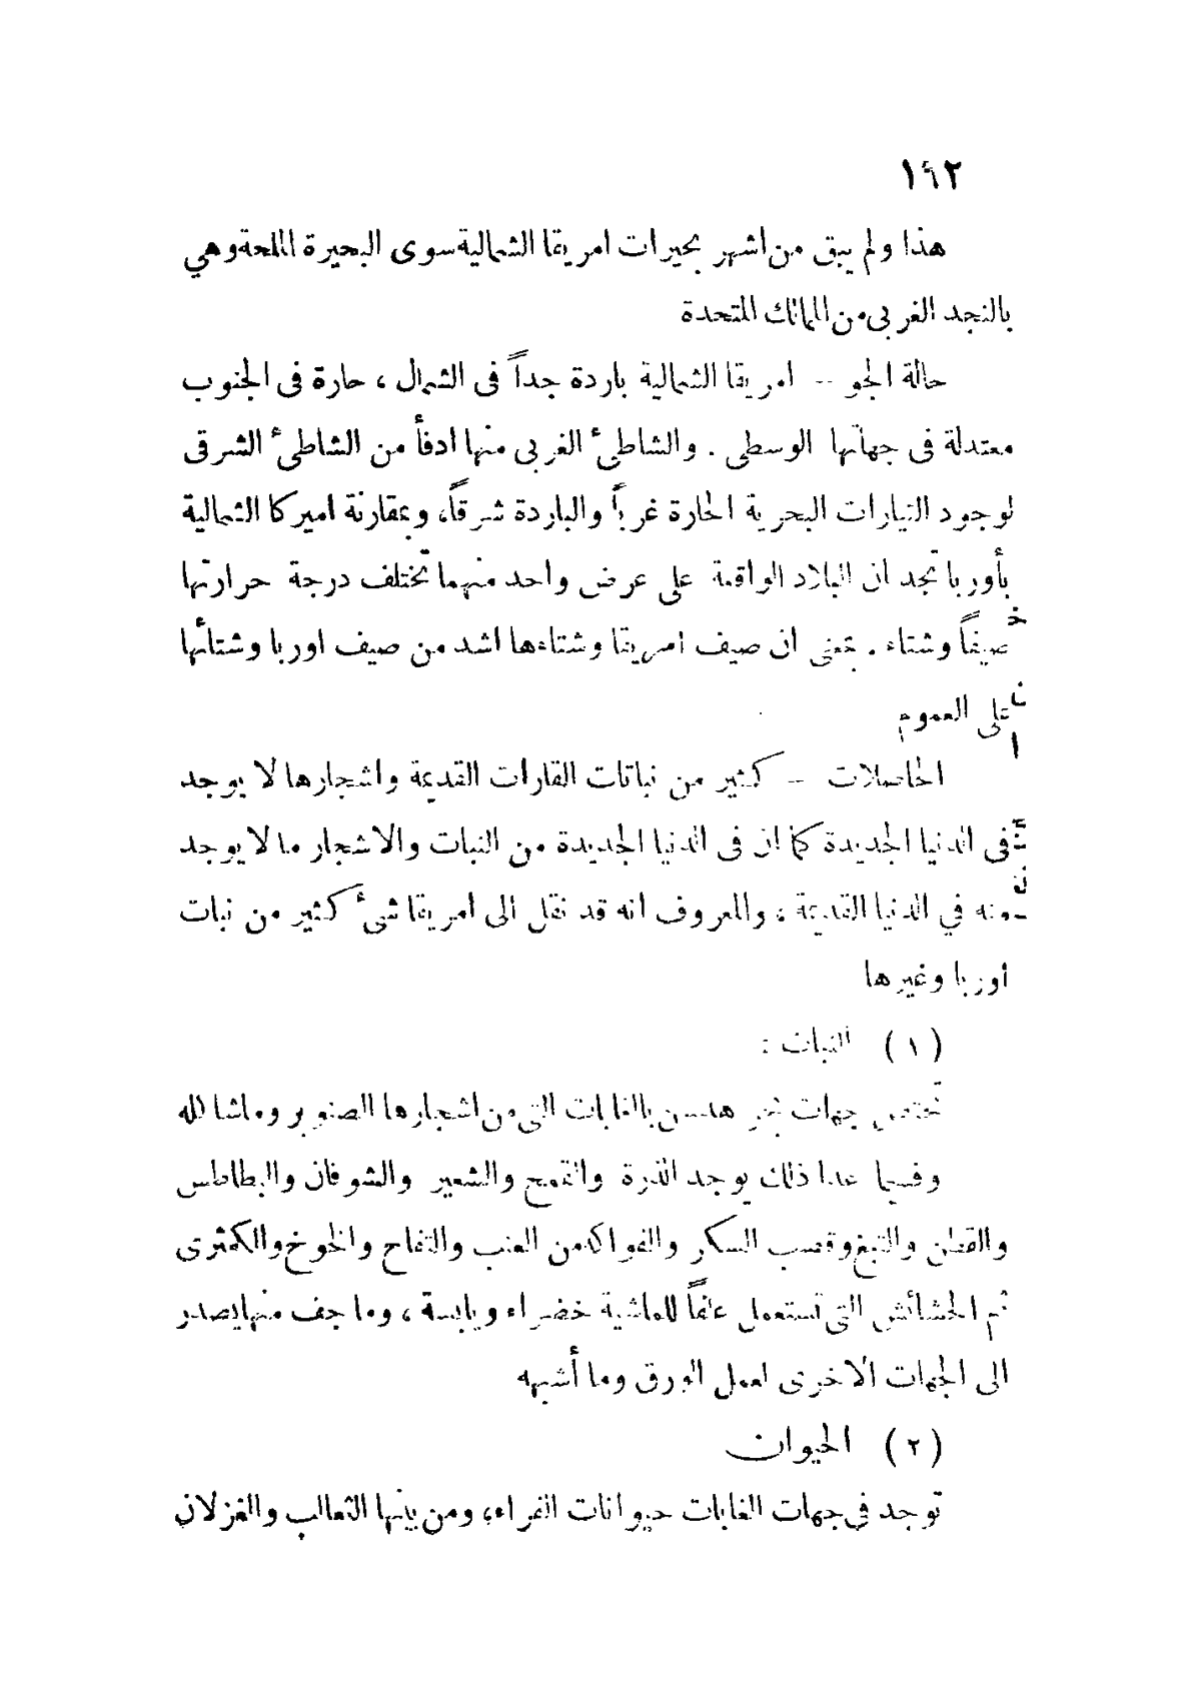 ١٩٢
هذا ولم يبق من اشهر بحيرات امريقا الشمالية سوى البحيرة الملحة وهي
بالنجد الغربى من الممالك المتحدة
حالة الجو -- امريقا الشمالية باردة جداً فى الشمال ، حارة فى الجنوب
معتدلة فى جهاتها الوسطى . والشاطئ الغربى منها ادفأ من الشاطئ الشرقى
لوجود التيارات البحرية الحارة غرباً والباردة شرقاً، وبمقارنة اميركا الشمالية
بأوربا تجد ان البلاد الواقعة على عرض واحد منهما تختلف درجة حرارتها
صيفاً وشتاء . بمعنى ان صيف امريقا وشتاءها اشد من صيف اوربا وشتائها
على العموم
الحاصلات -- كثير من نباتات القارات القديمة واشجارها لا يوجد
فى الدنيا الجديدة كما ان فى الدنيا الجديدة من النبات والاشجار ما لا يوجد
منه في الدنيا القديمة ، والمعروف انه قد نقل الى امريقا شئ كثير من نبات
اوربا وغيرها
( ١ ) النبات :
تختص جهات بحر هدسن بالغابات التى من اشجارها الصنوبر وماشا لله
وفيما عدا ذلك يوجد الذرة والقمح والشعير والشوفان والبطاطس
والقطن والتبغ وقصب السكر والفواكه من العنب والتفاح والخوخ والكمثرى
ثم الحشائش التى تستعمل علفاً للماشية خضراء ويابسة ، وما جف منها يصدر
الى الجهات الاخرى لعمل الورق وما أشبهه
( ٢ ) الحيوان
توجد في جهات الغابات حيوانات الفراء، ومن بينها الثعالب والغزلان